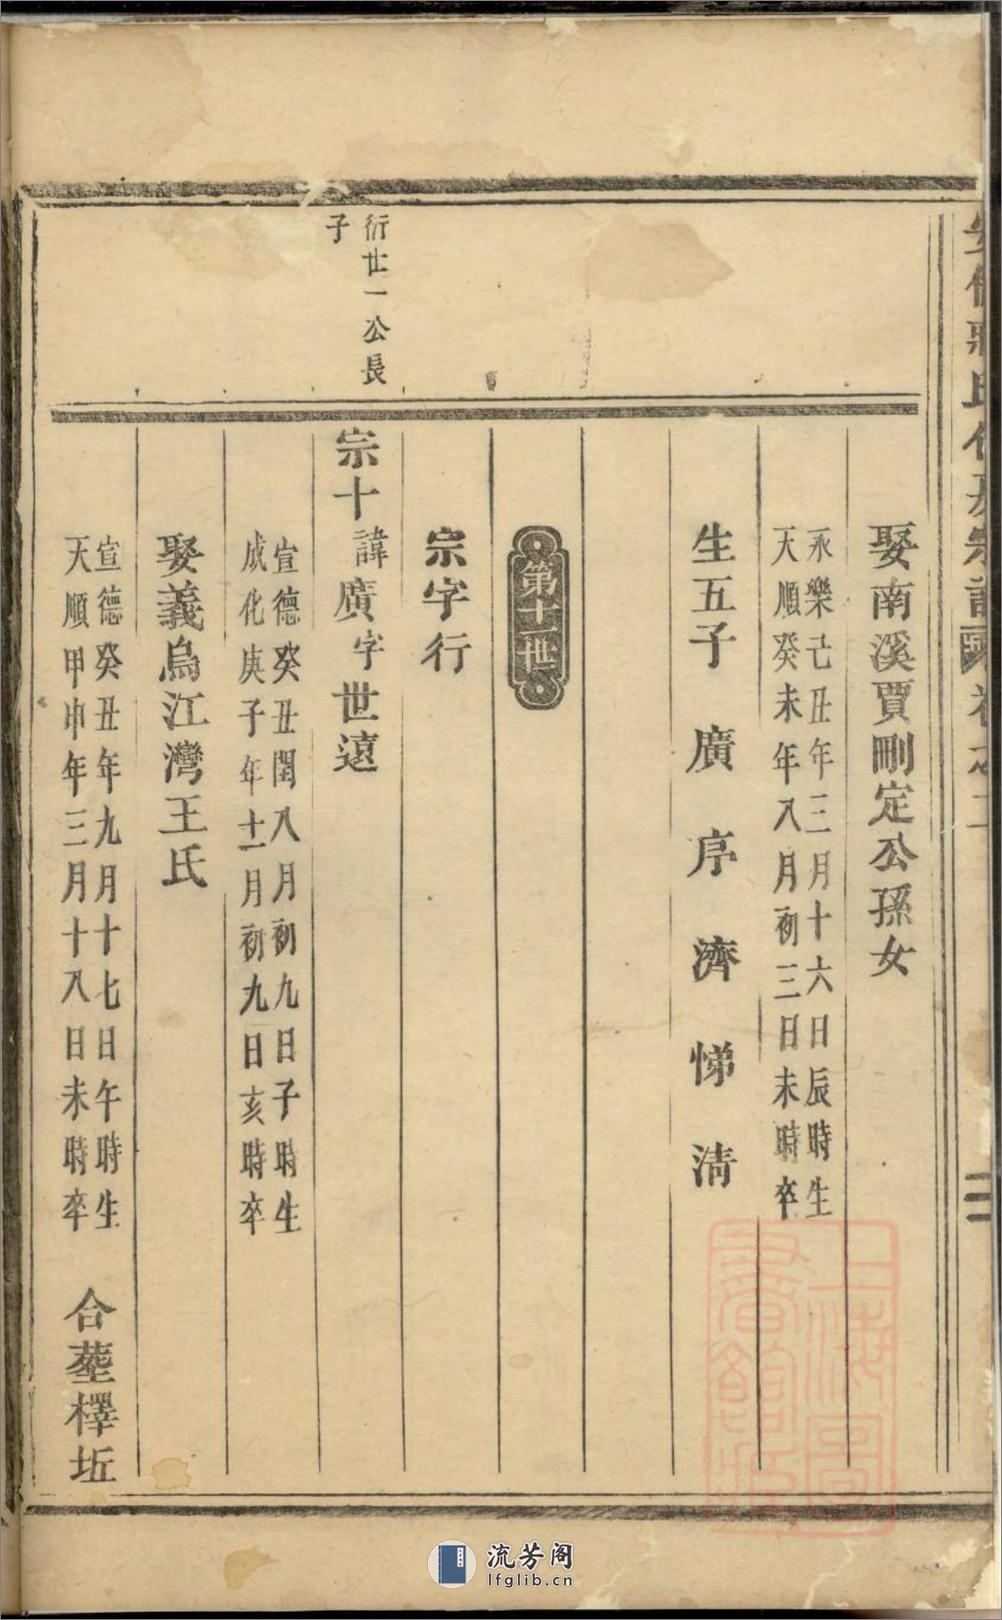 娶南溪賈刪定公孫女
永樂己丑年三月十六日辰時生
天順癸未年八月初三日未時卒
生五子 廣 序 濟 悌 清
第十一世
宗字行
衍廿一公長
子
宗十 諱廣字世遠
宣德癸丑閏八月初九日子時生
成化庚子年十一月初九日亥時卒
娶義烏江灣王氏
宣德癸丑年九月十七日午時生
天順甲申年三月十八日未時卒
合塟檡坵
流芳阁
lfglib.cn